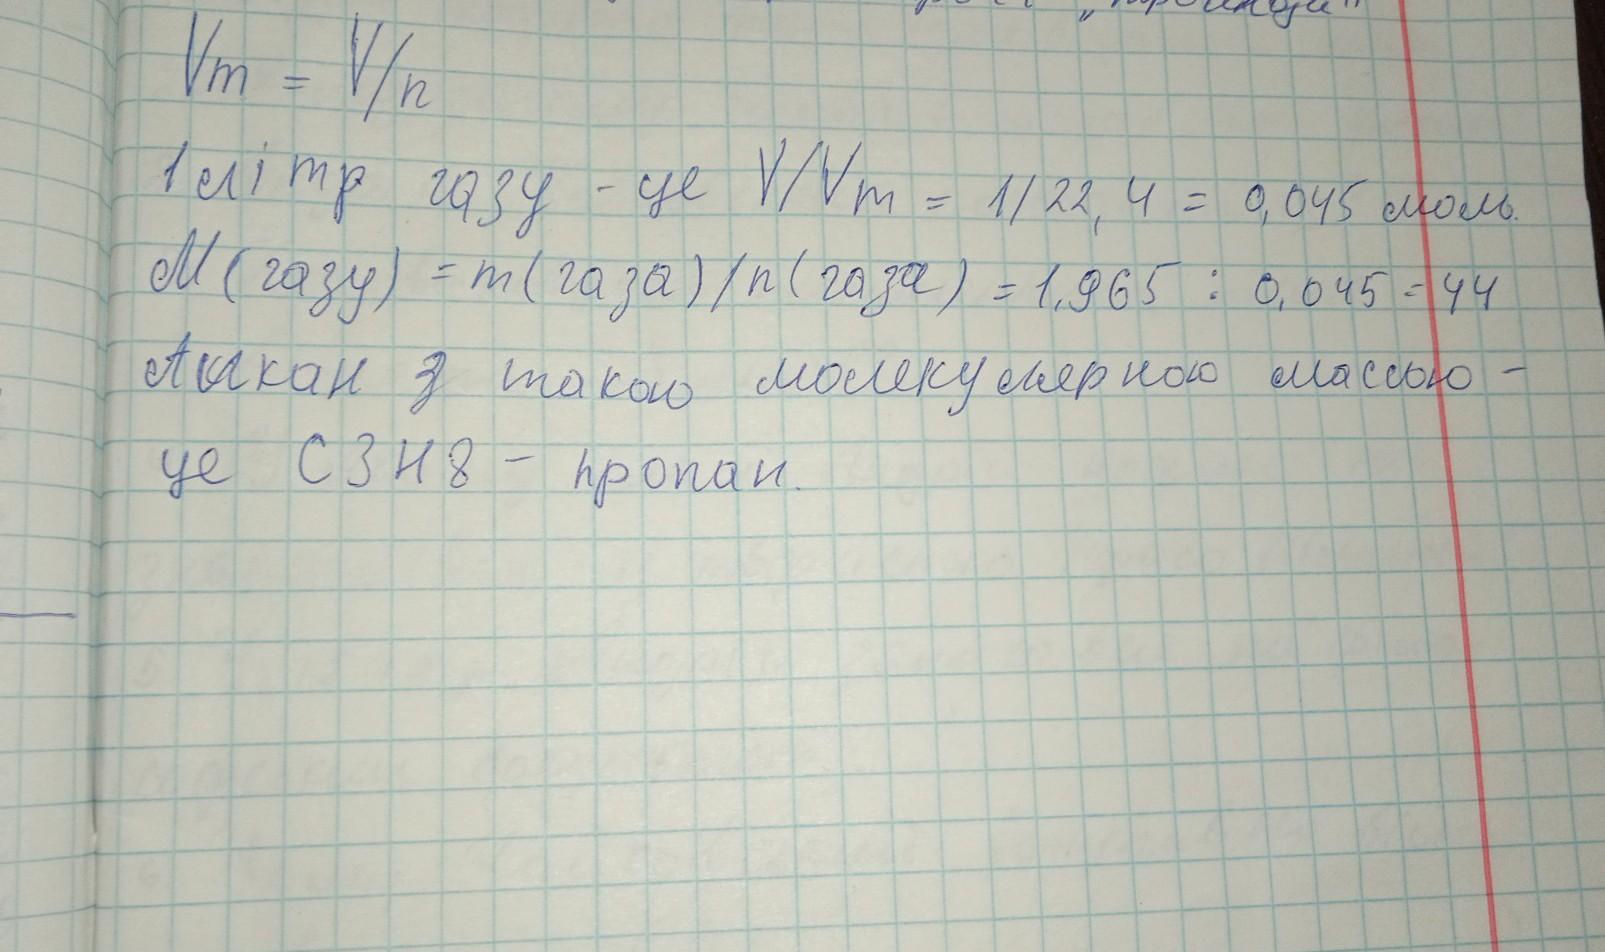 Vm = V/n
1 літр газу - це V/Vm = 1/22,4 = 0,045 моль.
М(газу) = m(газа)/n(газа) = 1,965 : 0,045 = 44
Алкан з такою молекулярною массою -
це С3Н8 - пропан.